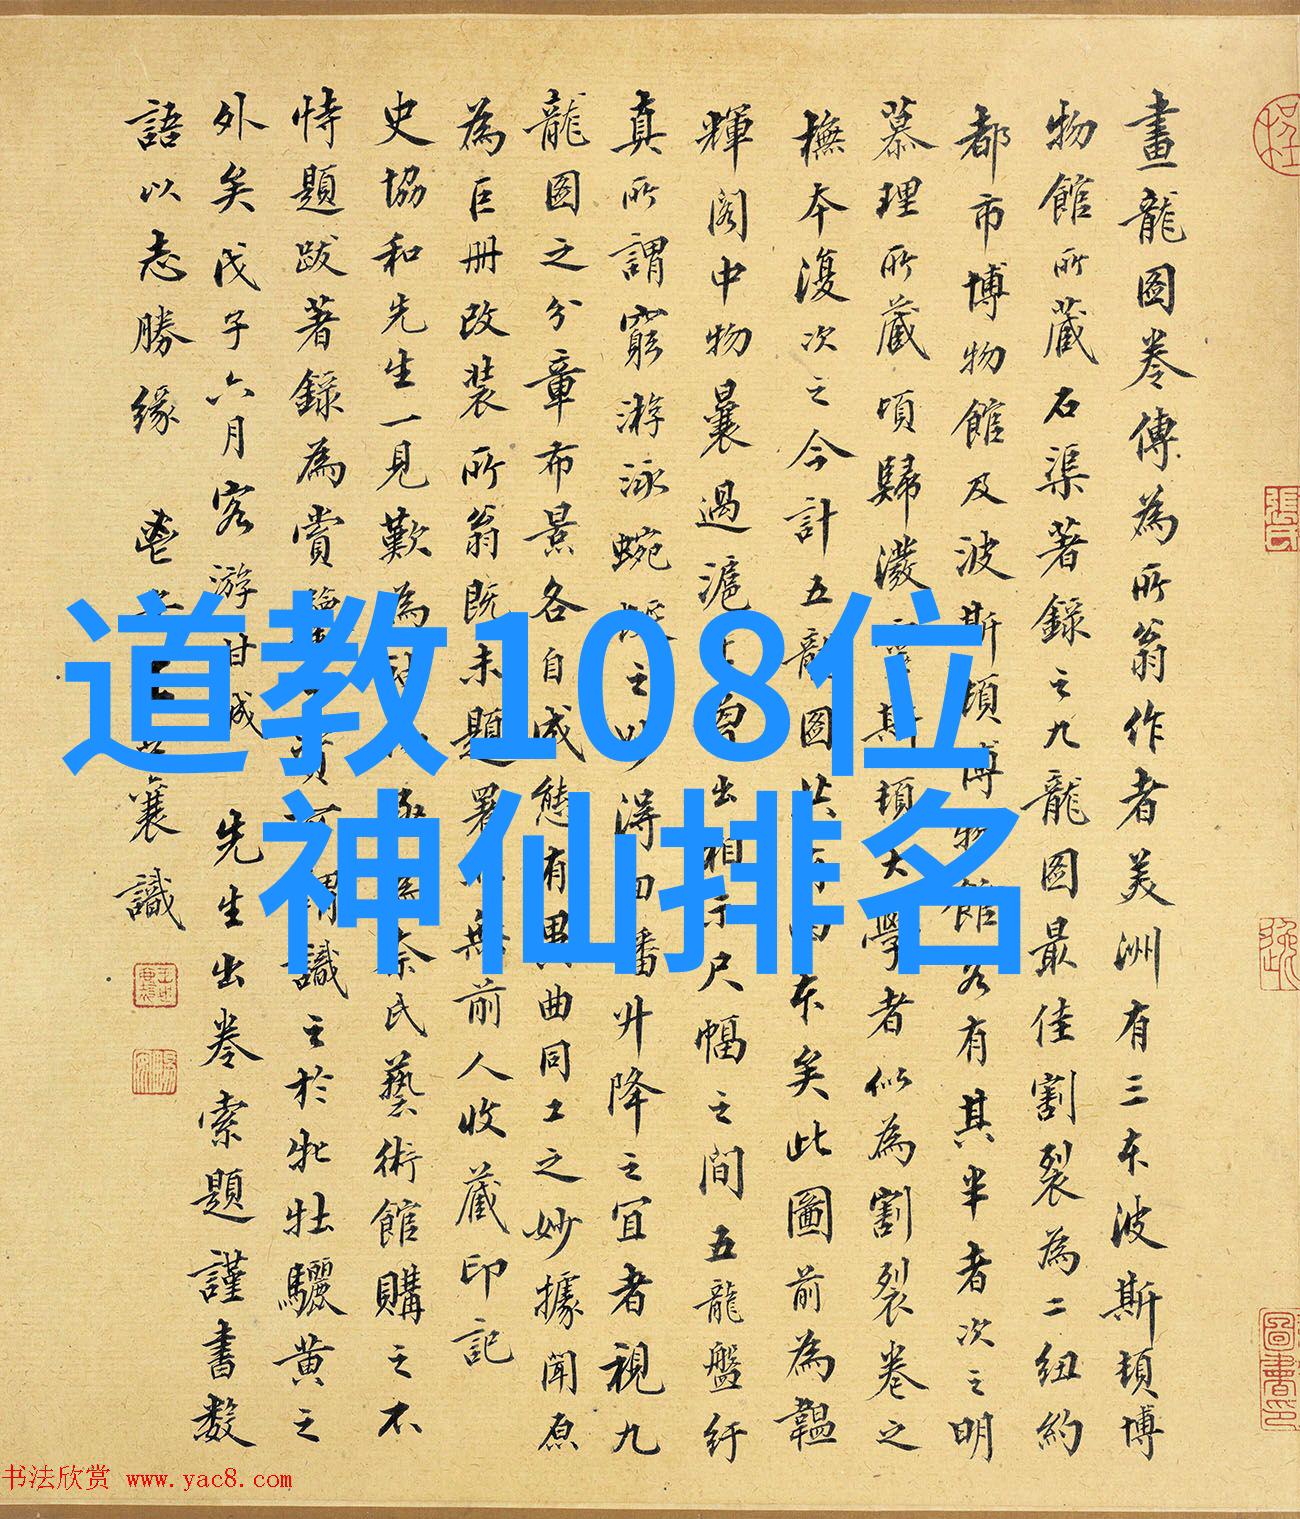 畫龍圖卷傳為所翁作者美洲有三本波斯頓博
物館所藏石渠著錄之九龍圖最佳割裂為二紐約
都市博物館及波斯頓博物館各有其半者次之明
慕理所藏頃歸潑斯頓大學者似為割裂卷之
撫本復次之今計五龍圖共有兩本矣此圖前為韞
輝閣中物曩過滬上曾出相示尺幅之間五龍盤紆
真所謂窮游泳蜿蜒之妙得回蟠升降之宜者視九
龍圖之分章布景各自成態有異曲同工之妙據聞原
為巨冊改裝所翁既未題署又無前人收藏印記
史協和先生一見歎為奈氏藝術館購之不
恃題跋著錄為賞鑒可謂識之於牝牡驪黃之
外矣戊子六月客游甘城 先生出卷索題謹書數
語以志勝緣 襄識
道教108位
神仙排名
书法欣赏 www.yac8.com